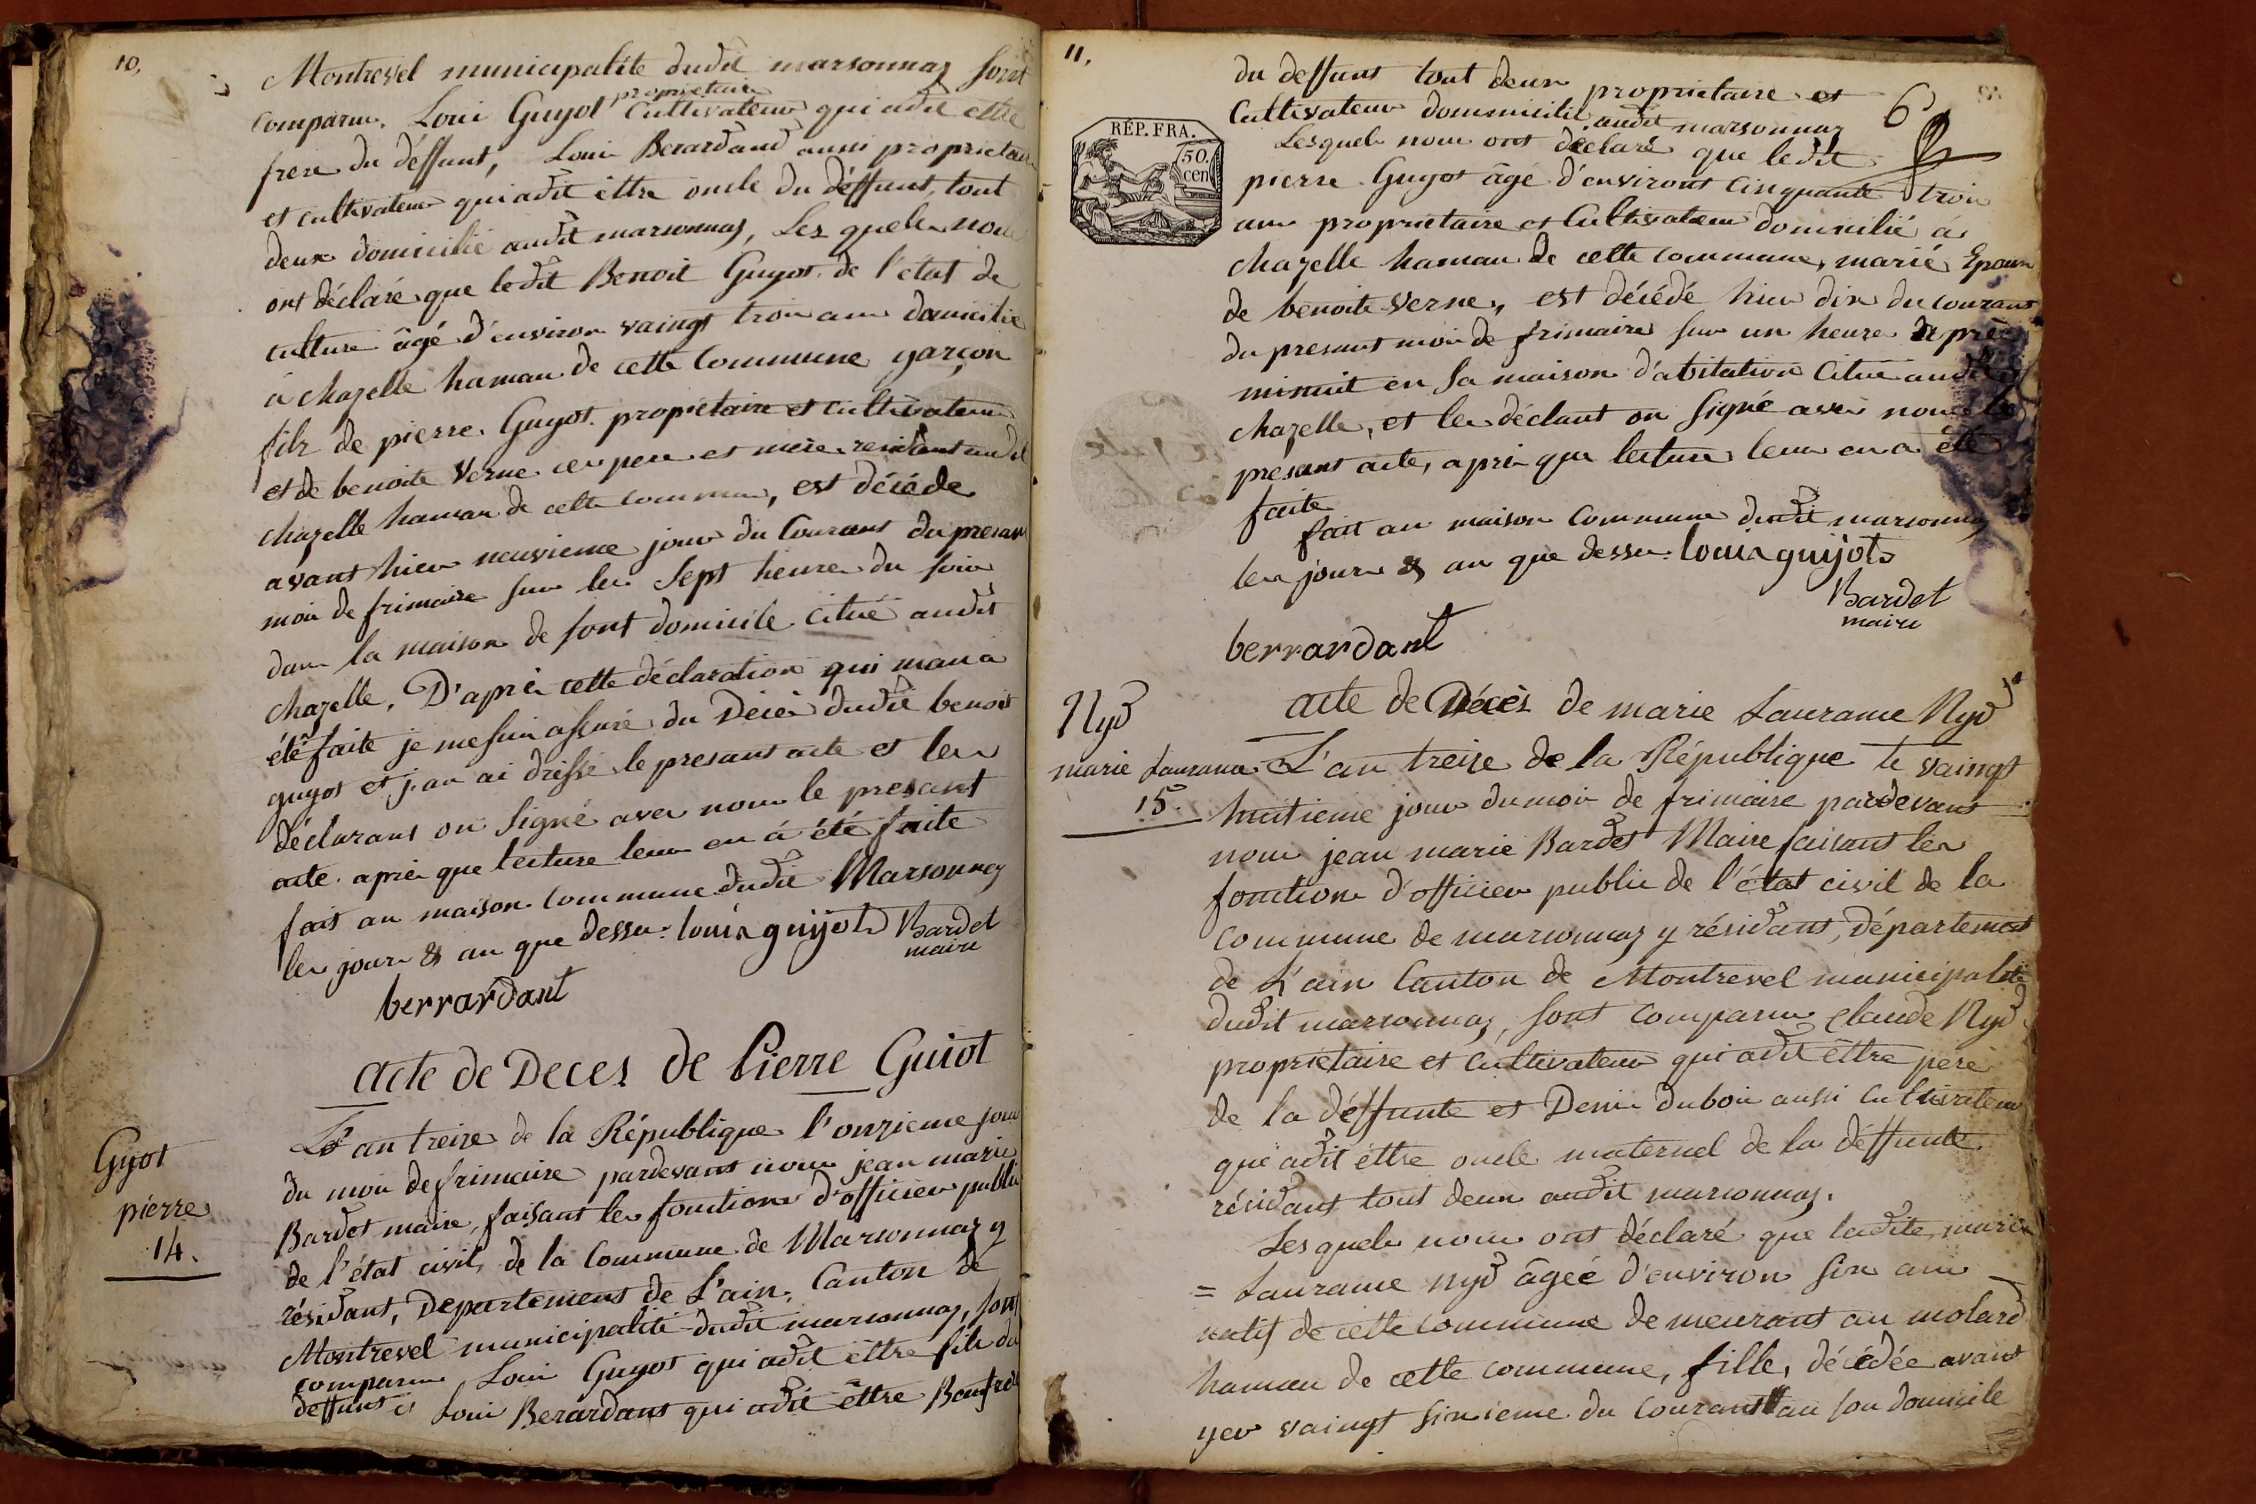 10.
Montrevel municipalité dudit marsonnaz sont
proprietaire
comparu. Loui Guyot Cultivateur qui adit ettre
frere du déffunt, Loui Berardand aussi proprietaire
et cultivateur qui adit ettre oncle du déffunt, tout
deux domicilié audit marsonnaz, Les quels nous
ont déclaré que ledit Benoit Guyot de l'état de
culture âgé d'environ vaingt troi ans domicilié
à chazelle hamau de cette commune garçon
filz de pierre Guyot proprietaire et cultivateur
et de benoite Verne ces pere et mere residant audit
chazelle hamau de cette commune, est décéde
avant hier neuvieme jour du Courant du presant
moi de frimaire sur les Sept heure du soir
dans la maison de sont domicile citué audit
chazelle. D'après cette déclaration qui mana
été faite je me suis assuré du Décès dudit benoit
guyot et j'an ai dressé le presant acte et les
déclarant on Signé avec nous le presant
acte aprés que lecture leur en à été faite
fait an maison commune dudit Marsonnaz
les jour & an que dessu. louis guijot Bardet
maire
berrardant
acte de Deces de Pierre Guiot
Gyot
pierre
14.
L'an treize de la République l'onzieme jour
du moi de frimaire pardevant nous jean marie
Bardet maire, faisant les fonctions d'officier public
de l'état civil, de la Commune de Marsonnaz y
résidant, Departement de L'ain, Canton de
Montrevel municipalité dudit marsonnaz, sont
comparu Loui Guyot qui adit ettre fils du
deffunt et Loui Berardant qui adit êttre Beaufrere
11.
du deffunt tout deux proprietaire et
Cultivateur dommicilié audit marsonnaz
6
RÉP. FRA.
50.
cen
Lesquels nous ont déclaré que ledit
pierre Guyot âgé d'environt cinquante troi
ans proprietaire et Cultivateur domicilié à
chazelle hamau de cette commune, marié Epoux
de benoite Verne, est décédé hier dix du courant
du presant moi de frimaire sur un heure aprè
minuit en sa maison d'abitation Citué audit
chazelle, et les déclant on Signé avec nous le
présant acte, aprè que lecture leur en a été
faite
fait an maison Commune dudit marsonnaz
les jour & an que dessu. louis guijot
Bardet
maire
berrardant
acte de Décès de marie Laurame Nyd
Nyd
marie Laurame
15.
L'an treize de la République le vaingt
huitieme jour du moi de frimaire pardevant
nous jean marie Bardet Maire faisant les
fonction d'officier public de l'état civil de la
commune de marsonnaz y résidant, Département
de L'ain Canton de Montrevel municipalité
dudit marsonnaz, sont comparu Claude Nyd
proprietaire et cultivateur qui adit êttre pere
de la déffunte et Deni duboi aussi cultivateur
qui adit êttre oncle maternel de la déffunte
résidant tout deux audit marsonnaz.
Lesquels nous ont déclaré que ladite marie
= Laurame nyd âgeé d'environ six ans
natif de cette commune demeurant au molard
hamau de cette commune, fille, décédée avant
yer vaingt sixieme du courant au son domicile